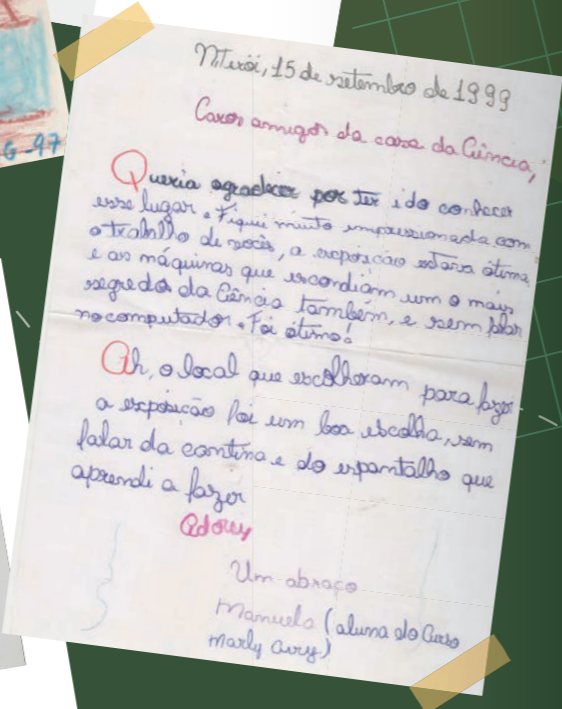 6-97
Niterói, 15 de setembro de 1999
Caros amigos da casa da Ciência,
Queria agradecer por ter ido conhecer
esse lugar. Fiquei muito impressionada com
o trabalho de vocês, a exposição estava ótima
e as máquinas que escondiam um o mais
segredos da Ciência também, e sem falar
no computador. Foi ótimo!
Ah, o local que escolheram para fazer
a exposição foi um boa escolha, sem
falar da cantina e do espantalho que
aprendi a fazer
Adorey
Um abraço
Manuela (aluna do Curso
Marly Cury)